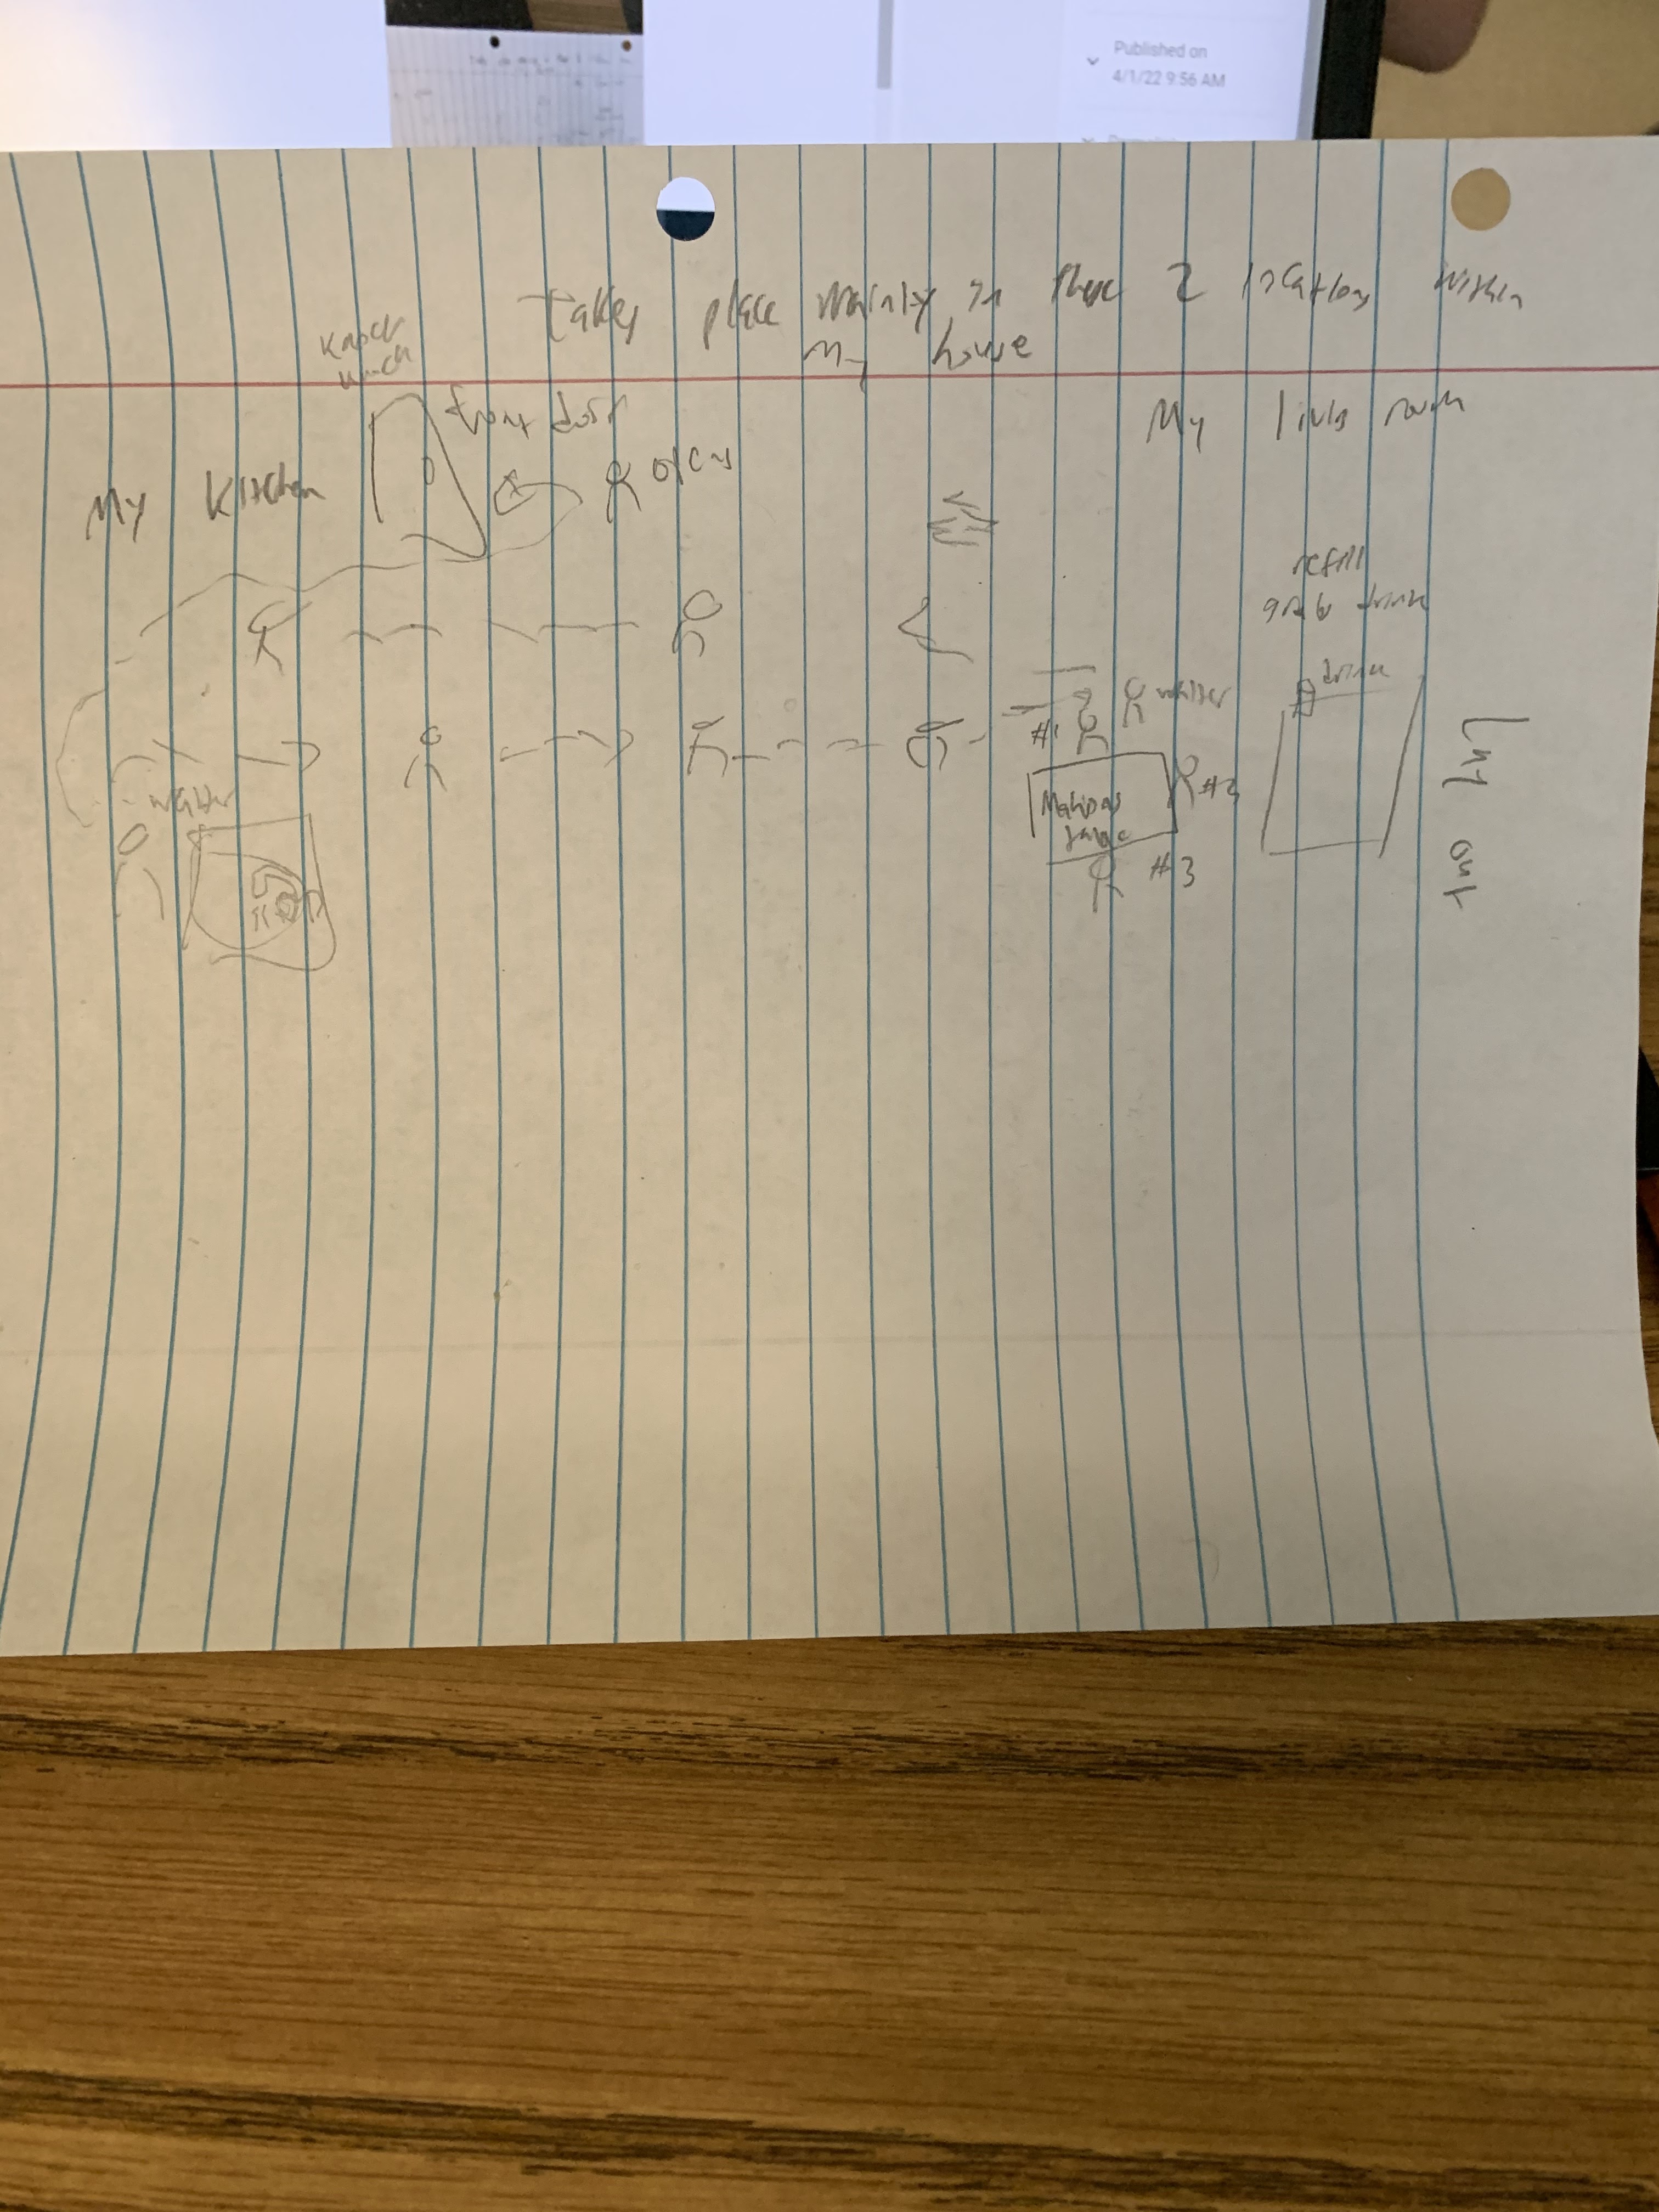 Published on
4/1/22 9:56 AM
Takes place mainly in these 2 locations within
My house
Knock
knock
front door
My living room
My kitchen
refill
grab drink
drink
waiter
#1
#2
#3
table
waiter
Lay out